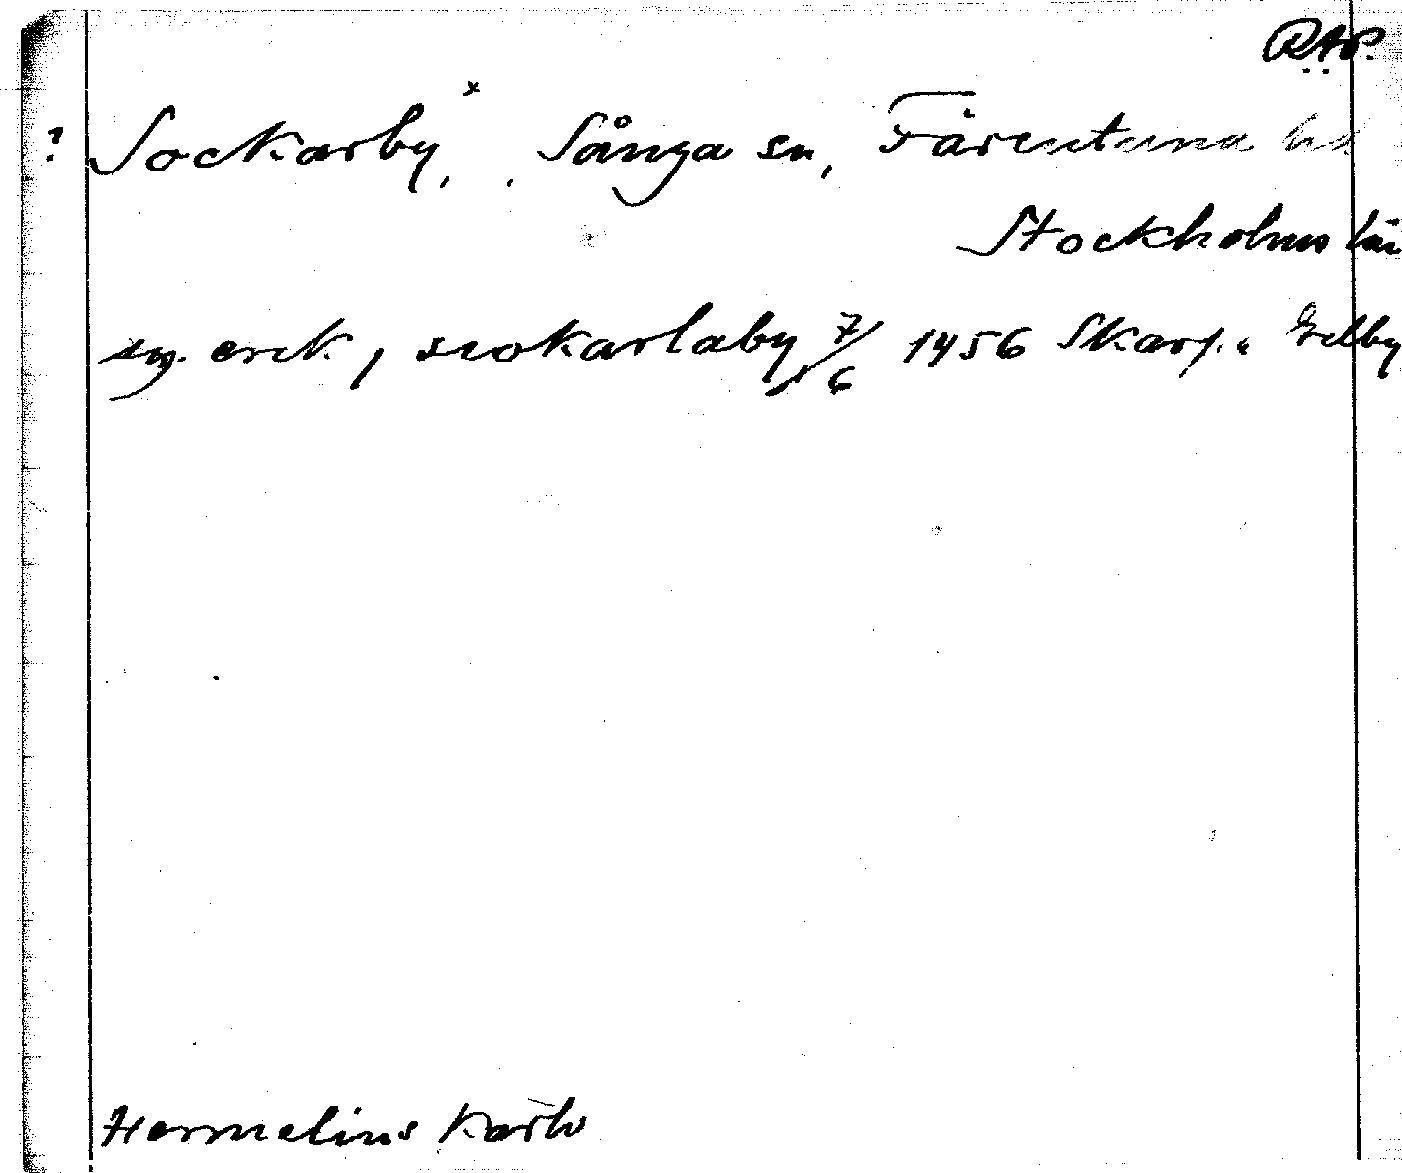 RAP.
? Sockarby,ˣ Sånga sn, Färentuna hd
Stockholms län
sig. erik, siokarlaby 7/6 1456 Skarp. Edby
Hermelins Kartb